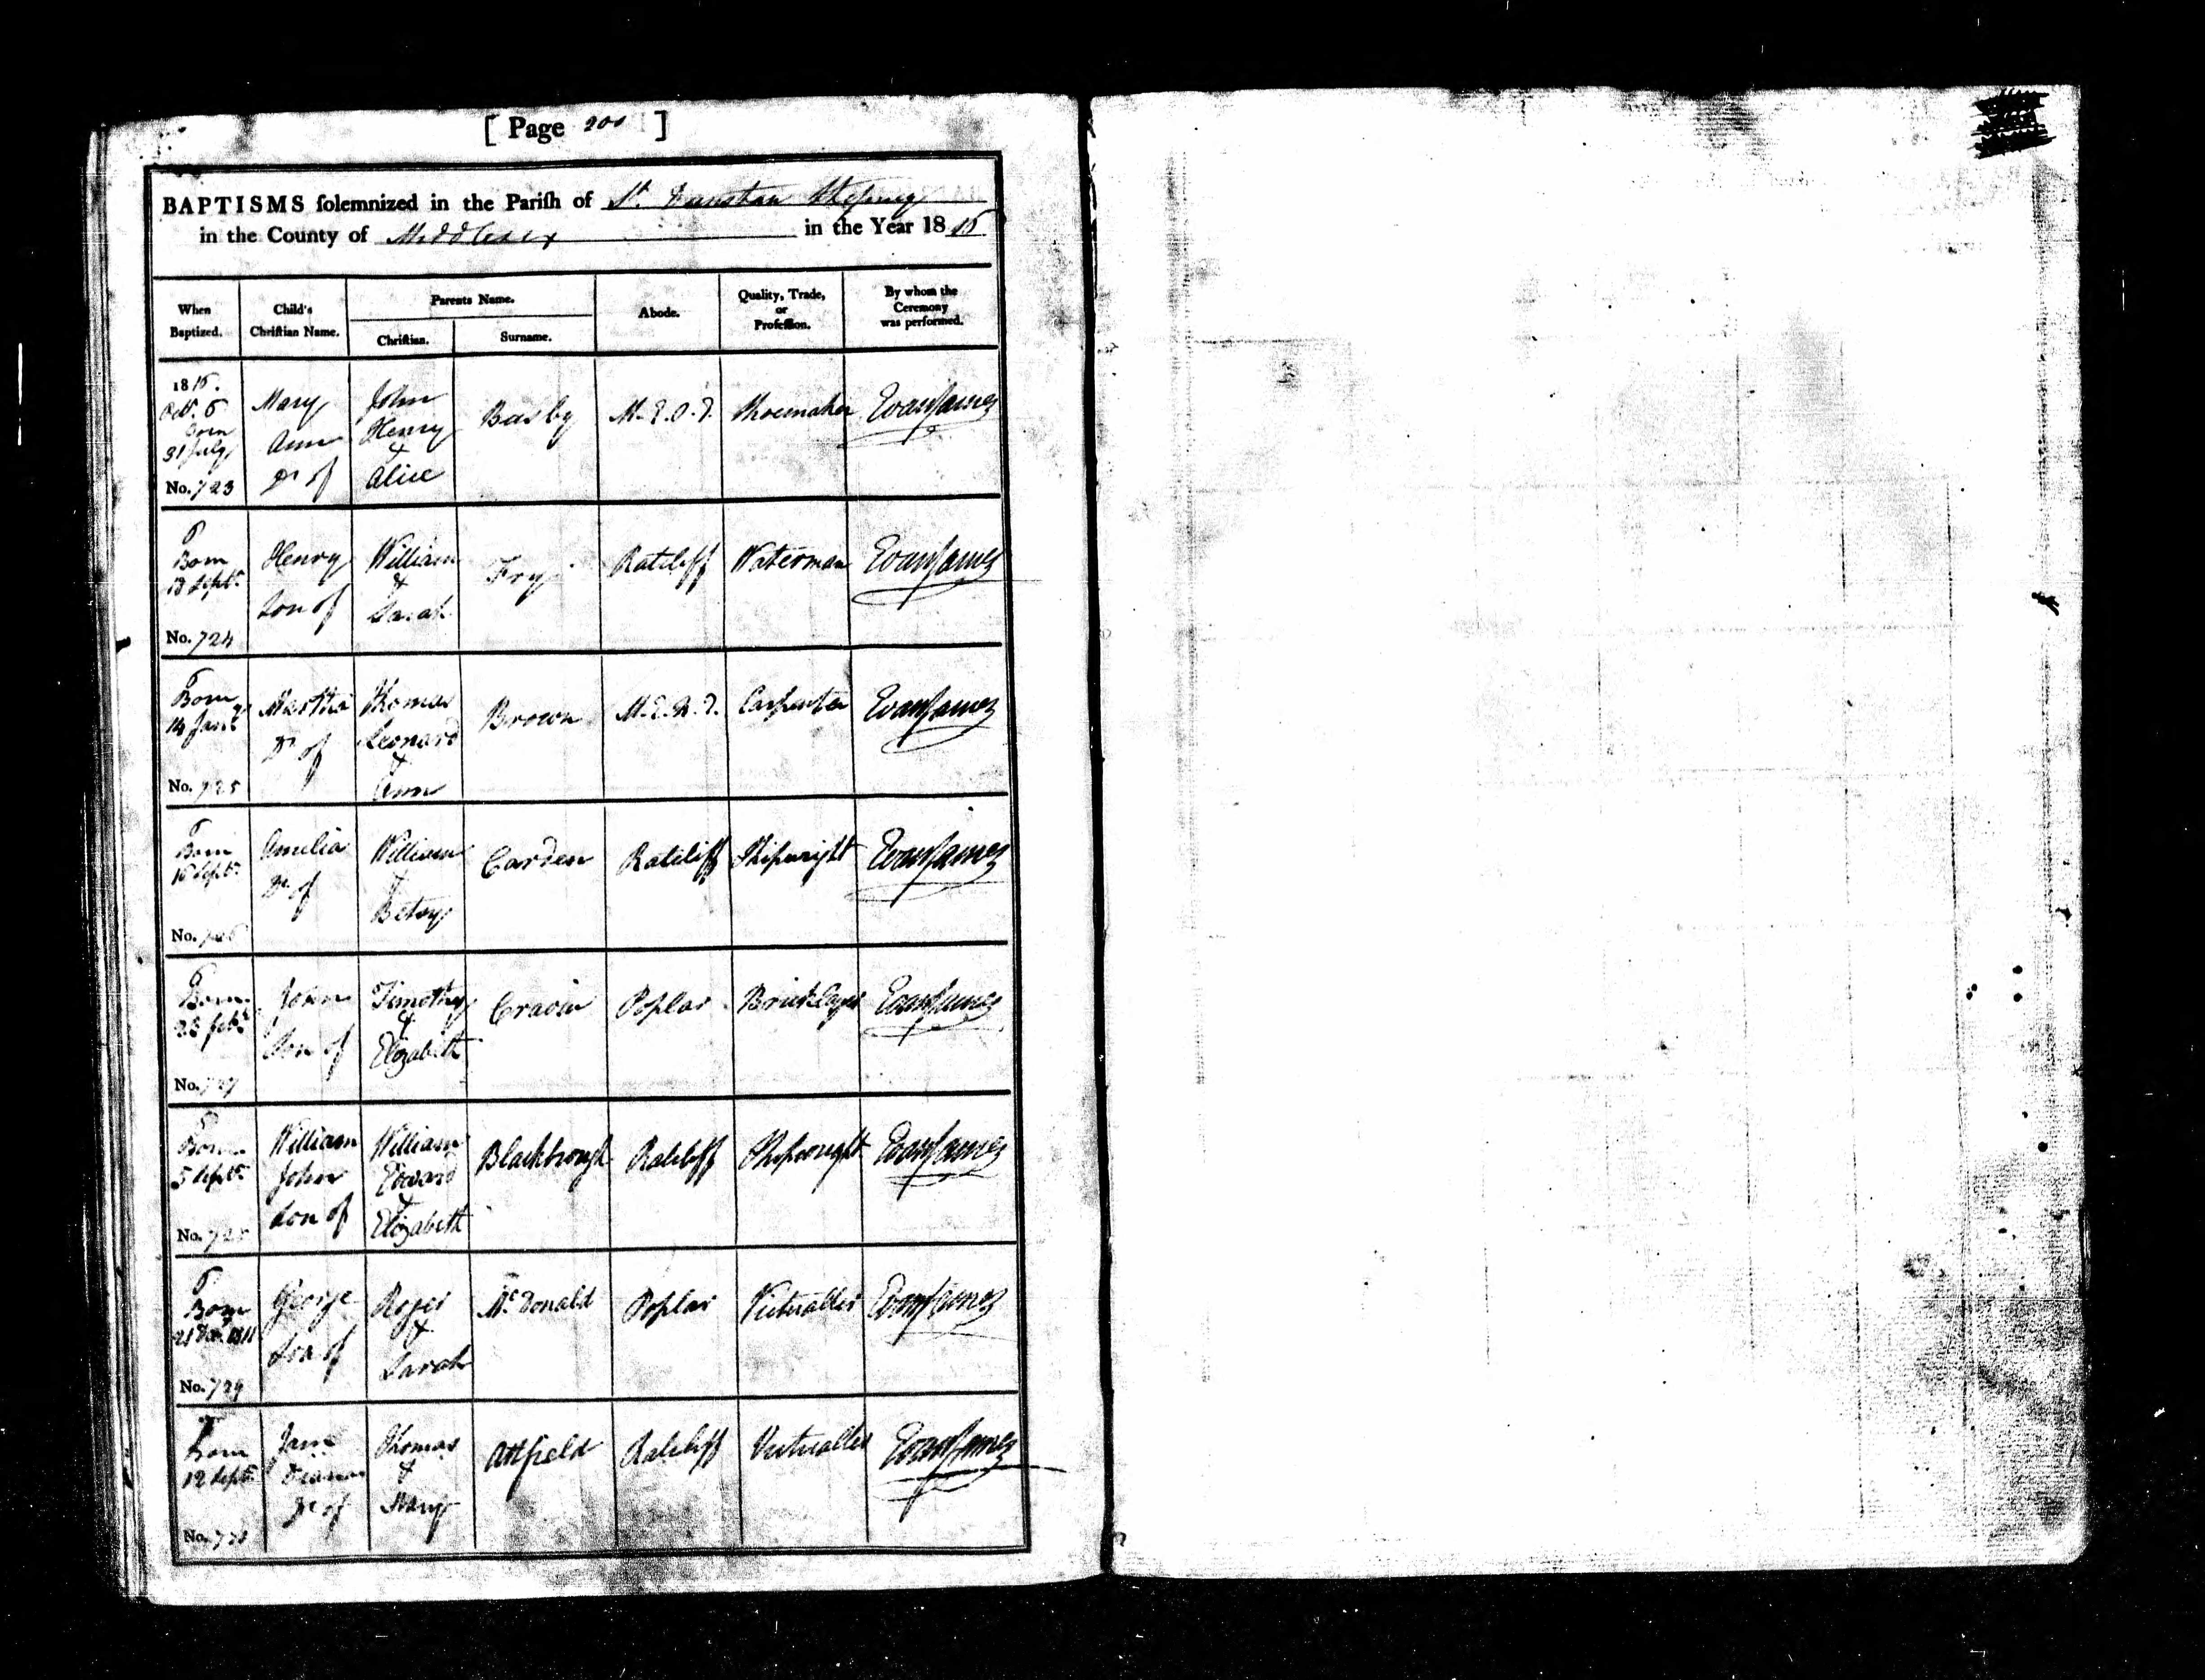 [ Page 200 ]
BAPTISMS ſolemnized in the Pariſh of St. Dunstan Stepney
in the County of Middlesex in the Year 18
When Baptized. Child's Chriſtian Name. Parents Name. Chriſtian. Surname. Abode. Quality, Trade, or Profeſſion. By whom the Ceremony was performed.
Octr. 6 Born 31 July No. 723 Mary Ann Dr of John Henry & Alice Busby M.E.O.T. Shoemaker Evan James
6 Born 13 Septr. No. 724 Henry Son of William & Sarah Fry Ratcliff Waterman Evan James
6 Born 14 Jany. No. 725 Martha Dr of Thomas Leonard & Ann Brown Carpenter Evan James
6 Born Septr. No. 726 Amelia Dr of William & Betsy Carden Ratcliff Shipwright Evan James
6 Born Feby. No. 727 John Son of Timothy & Elizabeth Poplar Bricklayer Evan James
6 Born 5 Septr. No. 728 William John Son of William Edward & Elizabeth Blackbrough Ratcliff Shipwright Evan James
6 Born 1811 No. 729 George Son of Roger & Sarah McDonald Poplar Victualler Evan James
6 Born 12 Septr. No. 730 Jane Dr of Thomas & Mary Attfield Ratcliff Victualler Evan James